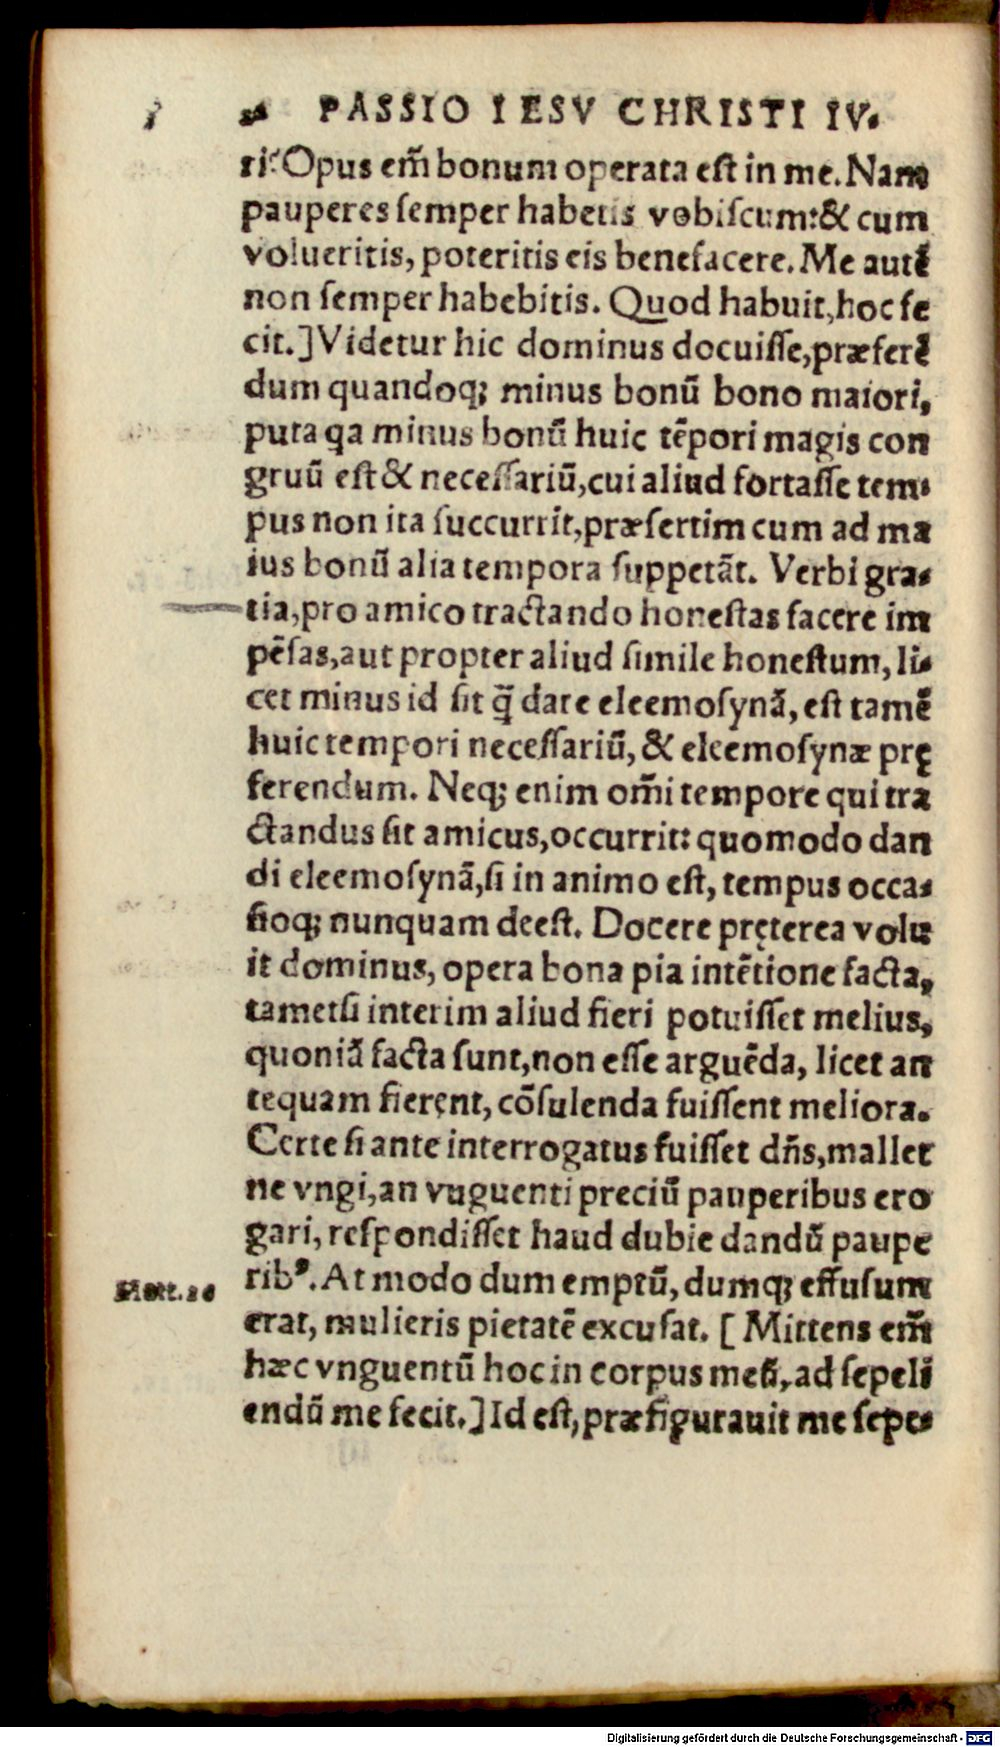 PASSIO IESV CHRISTI IV.
ri? Opus em̃ bonum operata est in me. Nam
pauperes semper habetis vobiscum: & cum
volueritis, poteritis eis benefacere. Me autẽ
non semper habebitis. Quod habuit, hoc fe
cit.] Videtur hic dominus docuisse, præferẽ
dum quandoq; minus bonũ bono maiori,
puta qa minus bonũ huic tẽpori magis con
gruũ est & necessariũ, cui aliud fortasse tem-
pus non ita succurrit, præsertim cum ad ma
ius bonũ alia tempora suppetãt. Verbi gra-
tia, pro amico tractando honestas facere im
pẽsas, aut propter aliud simile honestum, li-
cet minus id sit q̃ dare eleemosynã, est tamẽ
huic tempori necessariũ, & eleemosynæ prę
ferendum. Neq; enim om̃i tempore qui tra
ctandus sit amicus, occurrit: quomodo dan
di eleemosynã, si in animo est, tempus occa-
sioq; nunquam deest. Docere pręterea volu
it dominus, opera bona pia intẽtione facta,
tametsi interim aliud fieri potuisset melius,
quoniã facta sunt, non esse arguẽda, licet an
tequam fierent, cõsulenda fuissent meliora.
Certe si ante interrogatus fuisset dñs, mallet
ne vngi, an vnguenti preciũ pauperibus ero
gari, respondisset haud dubie dandũ paupe
ribꝰ. At modo dum emptũ, dumq; effusum
Matt.26
erat, mulieris pietatẽ excusat. [Mittens em̃
hæc vnguentũ hoc in corpus meũ, ad sepeli
endũ me fecit.] Id est, præfigurauit me sepe-
Digitalisierung gefördert durch die Deutsche Forschungsgemeinschaft - DFG